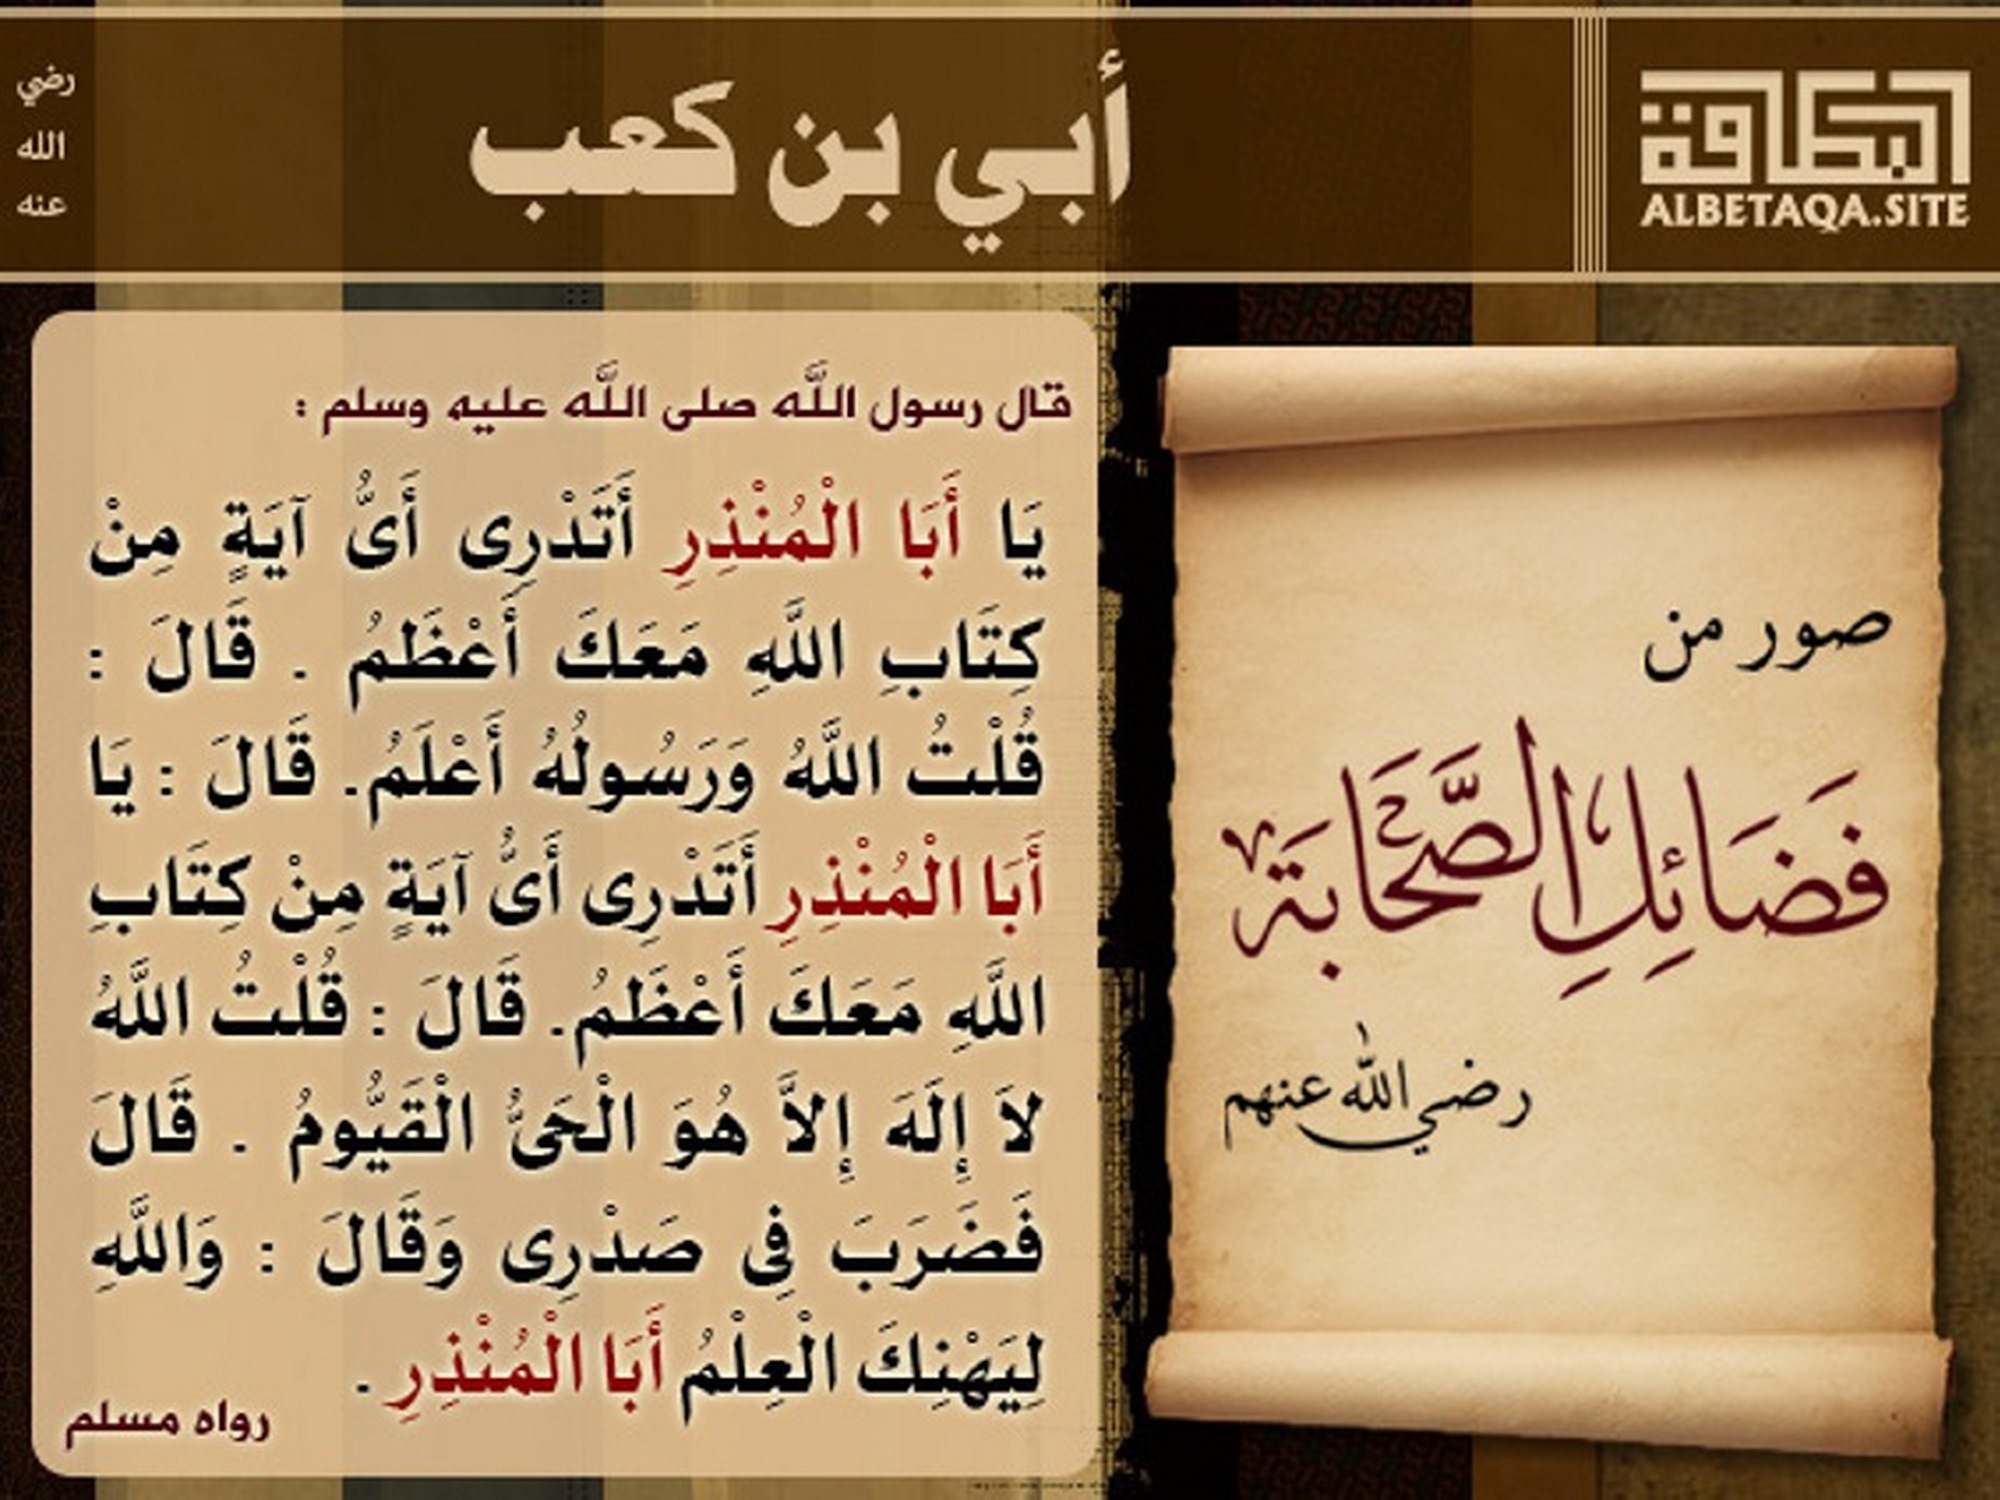 البطاقة
ALBETAQA.SITE
أبي بن كعب
رضي
الله
عنه
صور من
فَضَائِلِ الصَّحَابَة
رضي الله عنهم
قال رسول اللَّه صلى اللَّه عليه وسلم :
يَا أَبَا الْمُنْذِرِ أَتَدْرِى أَىُّ آيَةٍ مِنْ
كِتَابِ اللَّهِ مَعَكَ أَعْظَمُ . قَالَ :
قُلْتُ اللَّهُ وَرَسُولُهُ أَعْلَمُ. قَالَ : يَا
أَبَا الْمُنْذِرِ أَتَدْرِى أَىُّ آيَةٍ مِنْ كِتَابِ
اللَّهِ مَعَكَ أَعْظَمُ. قَالَ : قُلْتُ اللَّهُ
لاَ إِلَهَ إِلاَّ هُوَ الْحَىُّ الْقَيُّومُ . قَالَ
فَضَرَبَ فِى صَدْرِى وَقَالَ : وَاللَّهِ
لِيَهْنِكَ الْعِلْمُ أَبَا الْمُنْذِرِ .
رواه مسلم